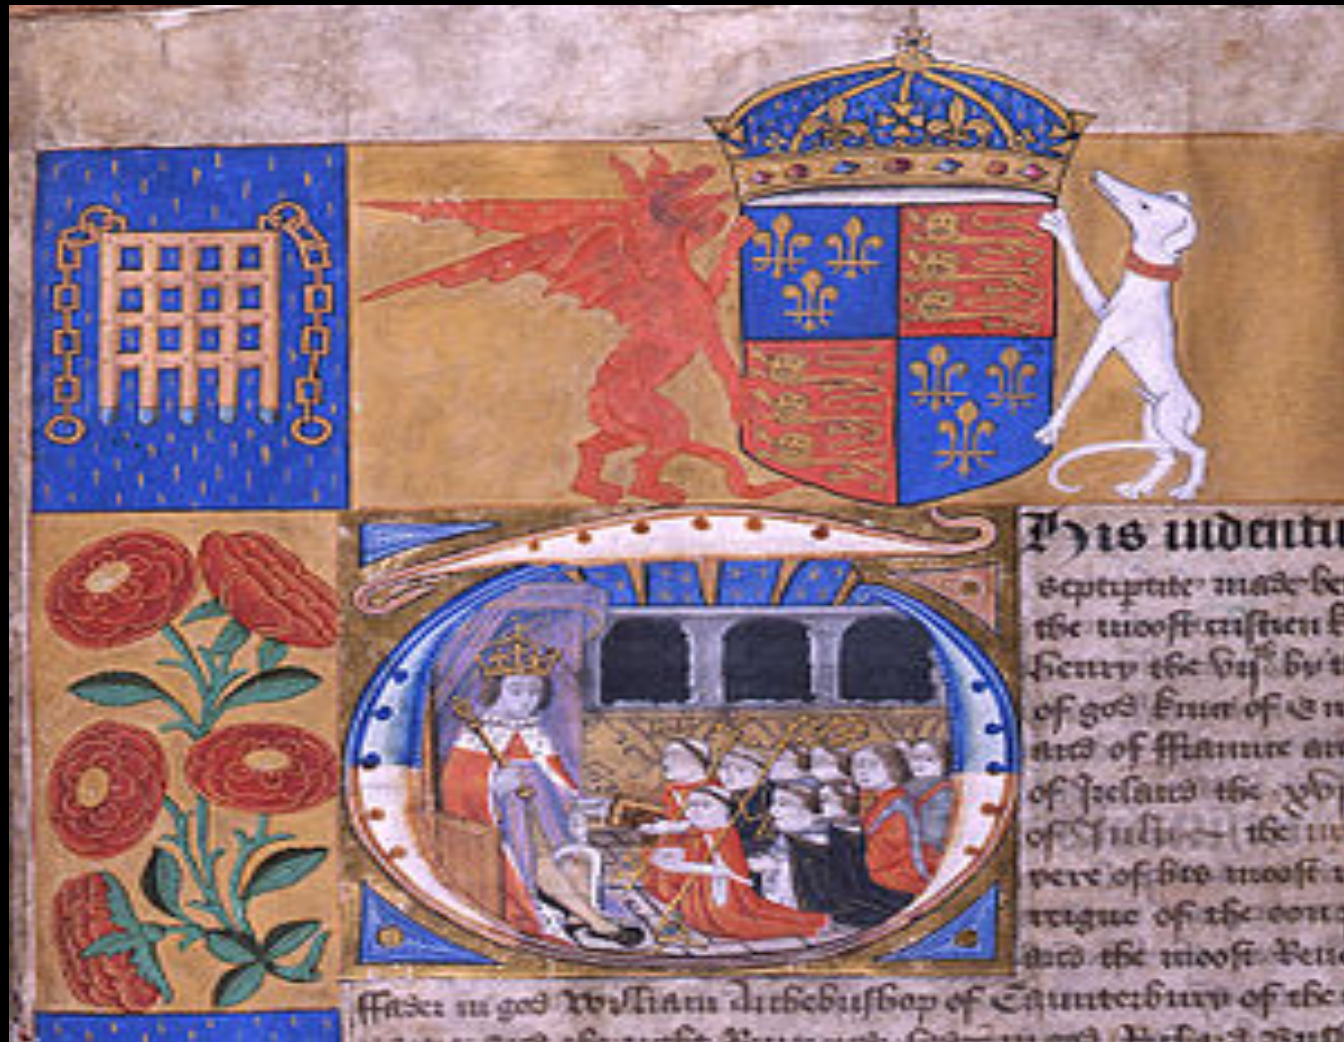 his indentu
septiptite made be
the moost cristen k
henry the vijth by t
of god kyng of En
and of ffraunce an
of Ireland the xvj
of Julie the
yere of his moost n
reigne of the
and the moost Reue
ffader in god William Archebusshop of Caunterbury of the